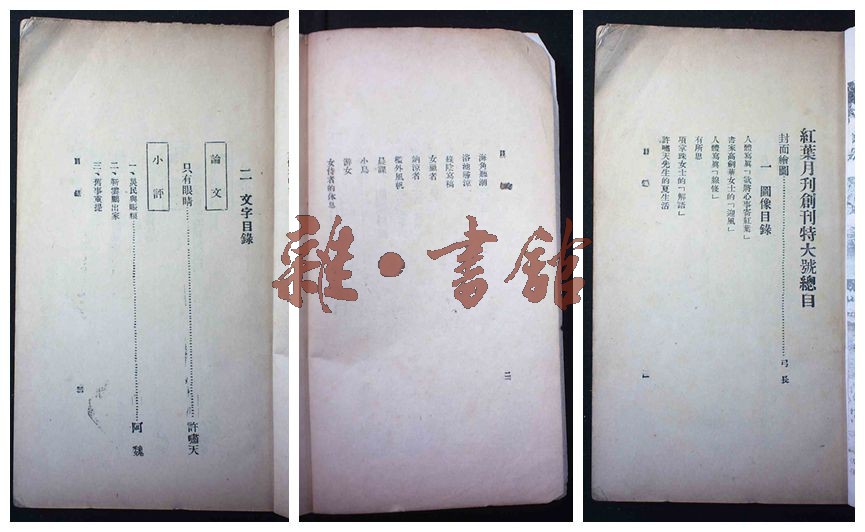 紅葉月刋創刊特大號總目
封面繪圖……弓長
一 圖像目錄
人體寫眞「我將心事寄紅葉」
書家高劍華女士的「迎風」
人體寫眞「線條」
有所思
項家珠女士的「解語」
許嘯天先生的夏生活
目錄
一
海角聽潮
浴池歸涼
綠陰寫稿
女獵者
納涼者
檻外風帆
晨課
小鳥
游女
女侍者的休息
目錄
二
二 文字目錄
論文
只有眼睛……許嘯天
小評
一、災民與賑糧……阿魏
二、靳雲鵬出家
三、舊事重提
目錄
三
雜·書館